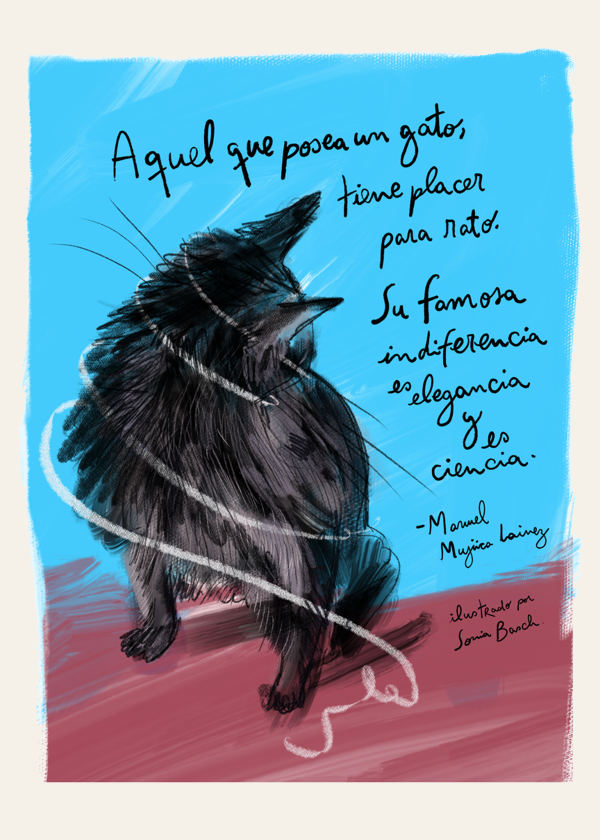 Aquel que posea un gato,
tiene placer
para rato.
Su famosa
indiferencia
es elegancia
y es
ciencia.
-Manuel
Mujica Lainez
ilustrado por
Sonia Basch.